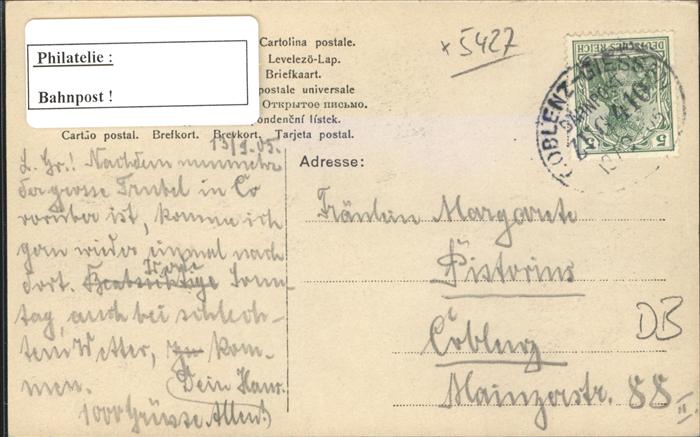 Philatelie :
Bahnpost !
Cartolina postale.
Levelezö-Lap.
Briefkaart.
postale universale
Открытое письмо.
Cartão postal. Brefkort. Brevkort. Tarjeta postal.
× 5427
DEUTSCHES REICH
5 5
COBLENZ-GIESS
BAHNPOST
ZUG 410
13/9.05.
L. Gr.! Nachdem nunmehr
der grosse Trubel in Co
vorüber ist, komme ich
gern wieder einmal nach
dort. Sonn-
tag, auch bei schlech-
tem Wetter, zu kom-
men. Dein Hans.
1000 Grüsse Allen!
Adresse:
Fräulein Margarete
Pistorius
Coblenz
Mainzerstr. 88
DB